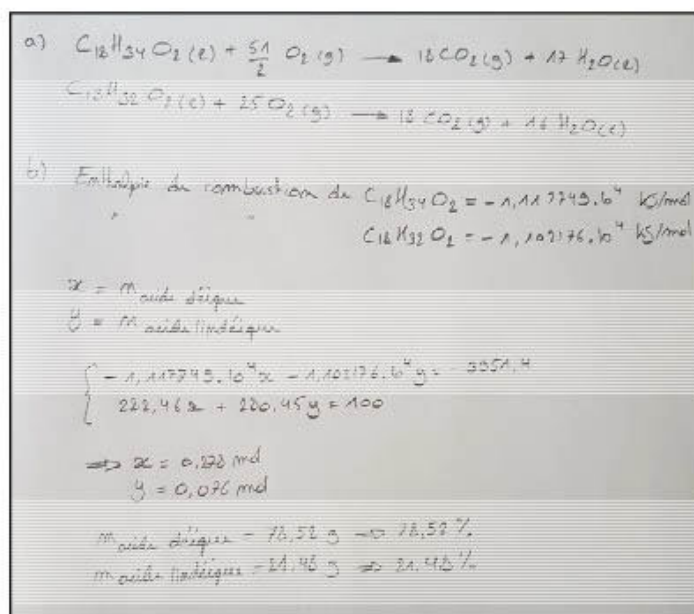 a) C18H34O2(l) + 51/2 O2(g) → 18CO2(g) + 17 H2O(l)
C18H32O2(l) + 25 O2(g) → 18 CO2(g) + 16 H2O(l)
b) Enthalpie de combustion de C18H34O2 = -1,117749.10^4 kJ/mol
" " C18H32O2 = -1,102176.10^4 kJ/mol
x = m acide oléique
y = m acide linoléique
{ -1,117749.10^4 x - 1,102176.10^4 y = -3951,4
282,46x + 280,45y = 100
⇒ x = 0,278 mol
y = 0,076 mol
m acide oléique = 78,52 g ⇒ 78,52 %
m acide linoléique = 21,48 g ⇒ 21,48 %